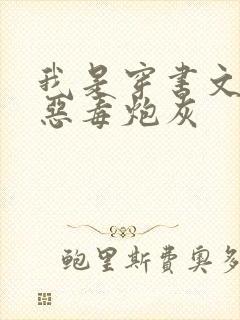 我是穿书文
惡毒炮灰
鲍里斯費奥多